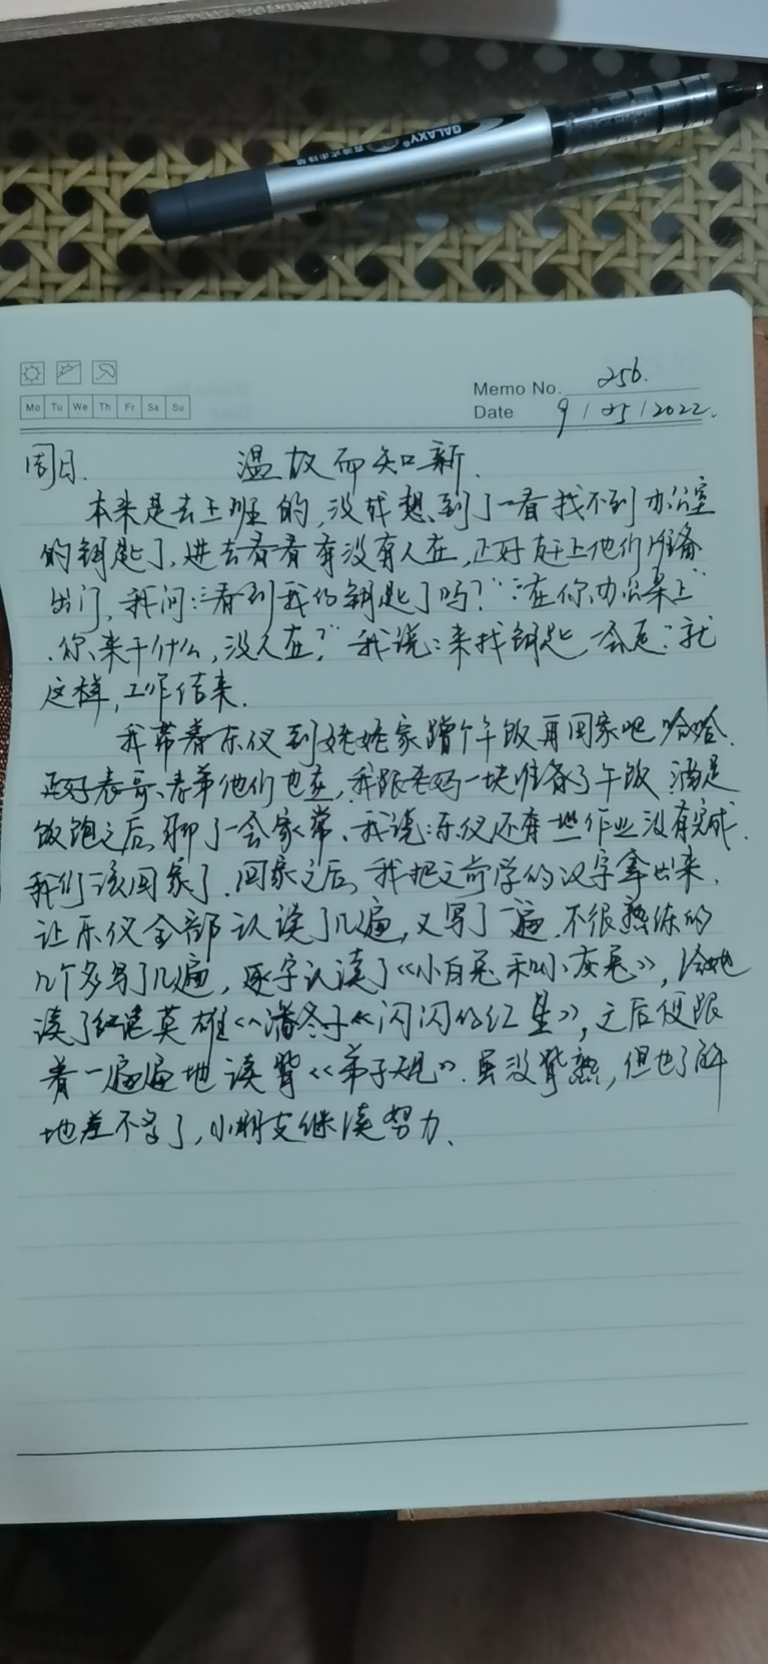 GALAXY®
Memo No. 256.
Mo Tu We Th Fr Sa Su
Date 9/25/2022.
周日. 温故而知新.
本来是去上班的,没成想到了一看找不到办公室
的钥匙了,进去看看有没有人在,正好赶上他们准备
出门,我问:“看到我的钥匙了吗?”“在你办公桌上”
“你来干什么,没人在?”我说:来找钥匙,会是”就
这样,工作结束.
我带着乐仪到姥姥家蹭个午饭再回家吧哈哈.
正好表哥、表弟他们也在,我跟老妈一块准备了午饭 酒足
饭饱之后,聊了一会家常、我说:乐仪还有些作业没有完成.
我们该回家了.回家之后,我把之前学的汉字拿出来,
让乐仪全部认读了几遍,又写了一遍,不很熟练的
几个多写了几遍,逐字认读了《小白兔和小灰兔》,给她
读了红色英雄《潘冬子《闪闪的红星》,之后便跟
着一遍遍地读背《弟子规》.虽没背熟,但也了解
地差不多了,小明支继续努力.